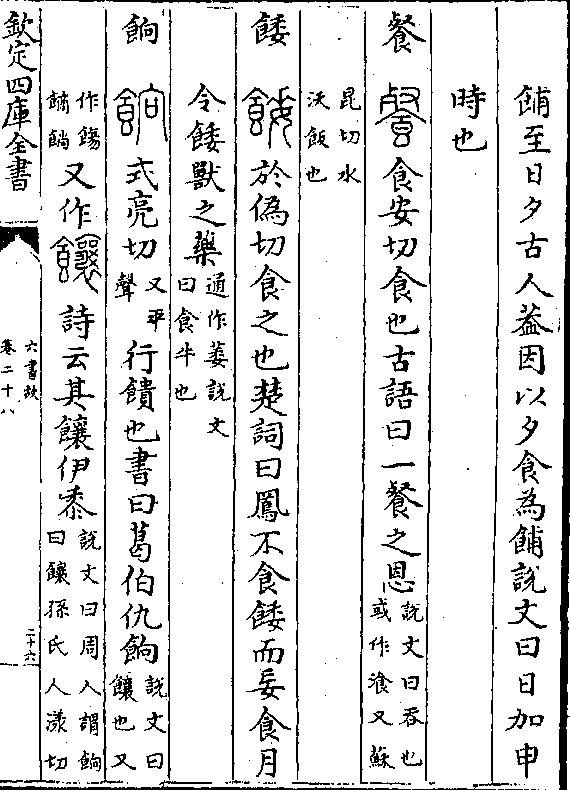 餔至日夕古人葢因以夕食為餔說文曰日加申
時也
餐 食安切食也古語曰一餐之恩說文曰吞也或作湌又蘇
昆切水沃飯也
餧 於偽切食之也楚詞曰鳳不食餧而妄食月
令餧獸之藥通作萎說文曰食牛也
餉 式亮切又平聲行饋也書曰葛伯仇餉說文曰饟也又
作餳䬴餉又作 詩云其饟伊黍說文曰周人謂餉曰饟孫氏人漾切
欽定四庫全書
六書故
卷二十八
二十六